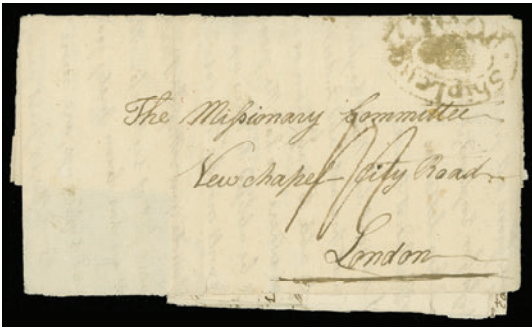 The Miſsionary Committee
New chapel - City Road
London